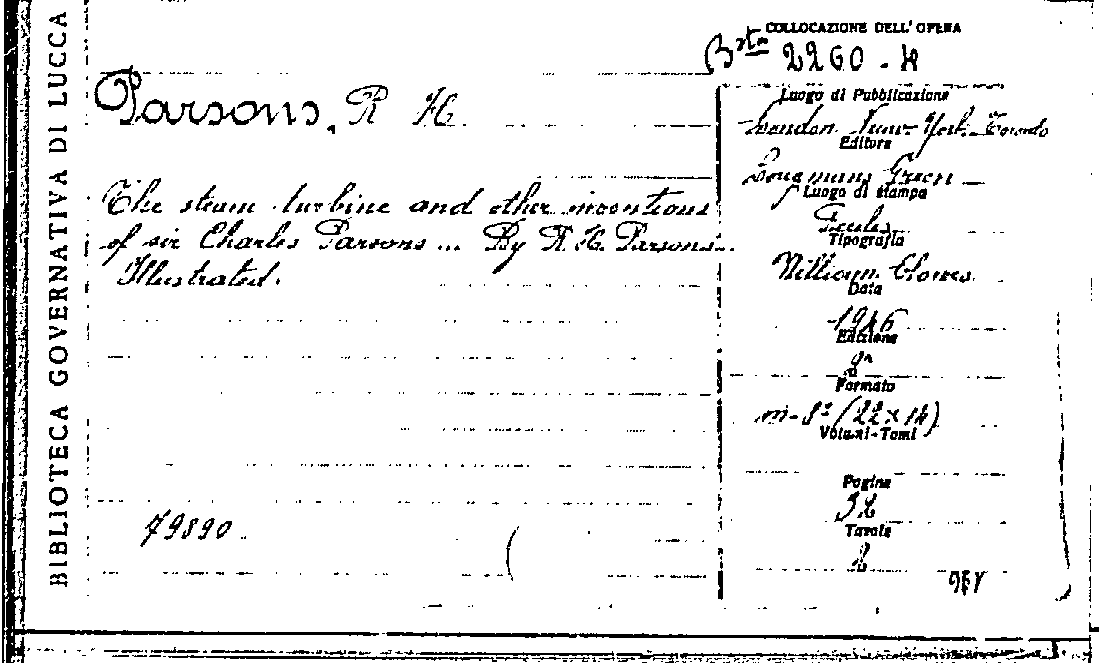 BIBLIOTECA GOVERNATIVA DI LUCCA
COLLOCAZIONE DELL'OPERA
Bsta 2260.4
Parsons, R H.
The steam turbine and other inventions
of sir Charles Parsons ... By R. H. Parsons...
Illustrated.
79890.
Luogo di Pubblicazione
London New-York Toronto
Editore
Longmans Green
Luogo di stampa
Beccles
Tipografia
William Clowes
Data
1946
Edizione
Formato
m-8º (22×14)
Volumi-Tomi
Pagine
32
Tavole
2